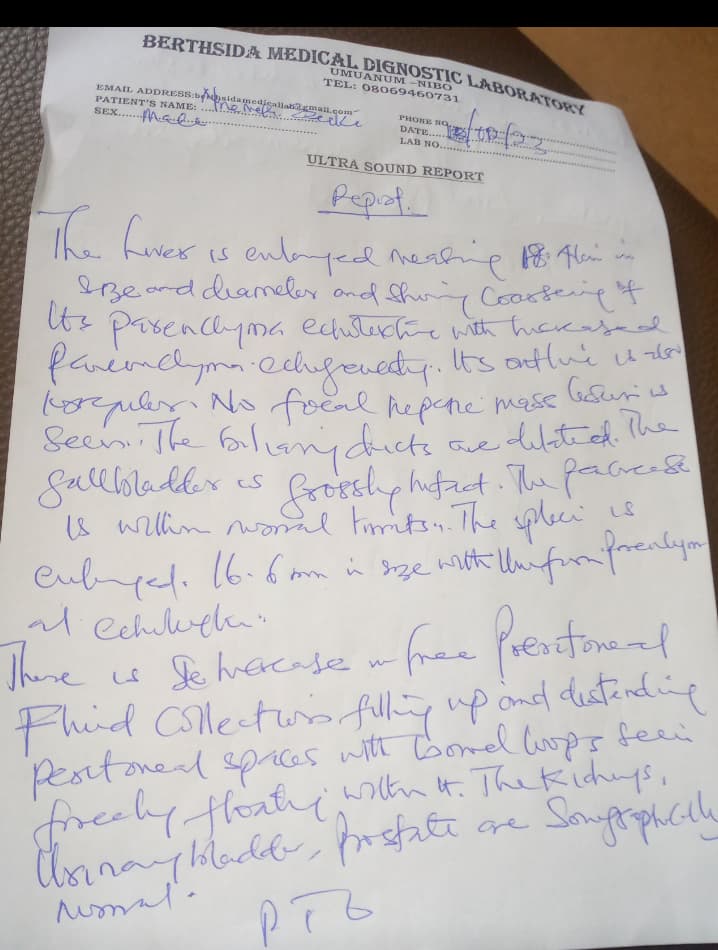 BERTHSIDA MEDICAL DIGNOSTIC LABORATORY
UMUANUM -NIBO
TEL: 08069460731
EMAIL ADDRESS:
PATIENT'S NAME:
SEX...... Male
PHONE NO
DATE.... /10/23
LAB NO.
ULTRA SOUND REPORT
Report.
The Liver is enlarged measuring 18. in
size and diameter and showing Coarsening of
Its parenchyma echotexture with Increased
parenchyma echogenecity. Its outline is also
Irregular. No focal hepatic mass lesion is
Seen. The biliary ducts are dilated. The
gallbladder is grossly Intact. The pancrease
is within normal limits. The spleen is
enlarged. 16.6mm in size with Uniform parenchym
al echotexture.
There is increase in free Peritoneal
Fluid Collections filling up and distending
peritoneal spaces with bowel loops seen
freely floating within it. The kidneys,
Urinary bladder, prostate are Sonographically
normal.
P T O